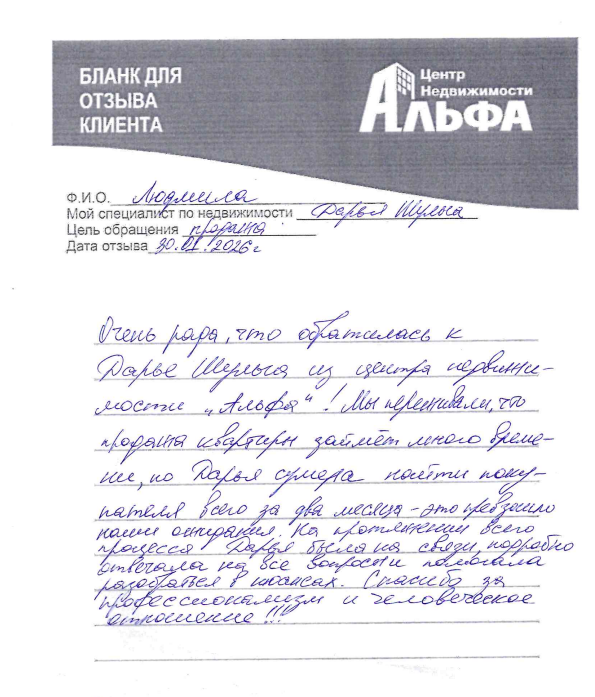 БЛАНК ДЛЯ
ОТЗЫВА
КЛИЕНТА
Центр
Недвижимости
АЛЬФА
Ф.И.О. Людмила
Мой специалист по недвижимости Дарья Шульга
Цель обращения продажа
Дата отзыва 30.01.2026г
Очень рада, что обратилась к
Дарье Шульга из центра недвижи-
мости „Альфа"! Мы переживали, что
продажа квартиры займёт много време-
ни, но Дарья сумела найти поку-
пателя всего за два месяца - это превзошло
наши ожидания. На протяжении всего
процесса Дарья была на связи, подробно
отвечала на все вопросы и помогала
разобраться в нюансах. Спасибо за
профессионализм и человеческое
отношение!!!